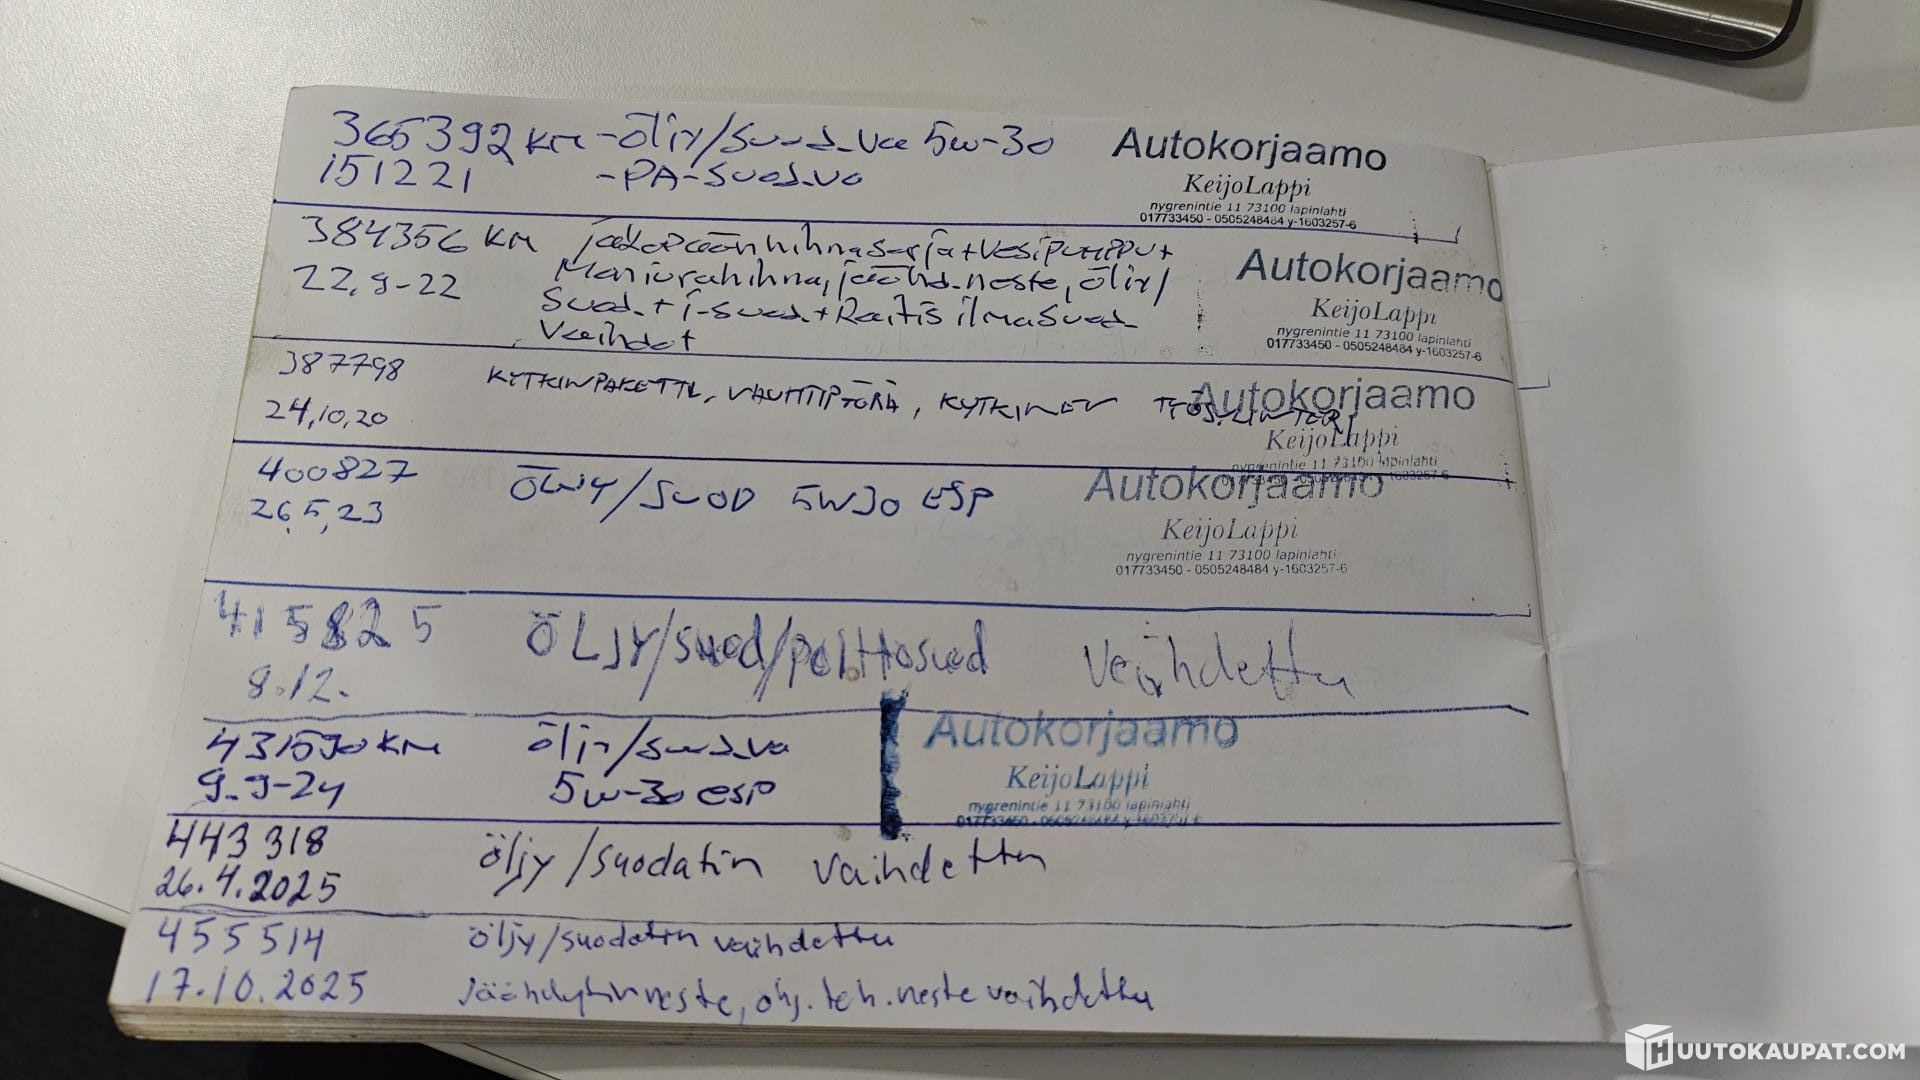 365392 KM -öljy/suod.va 5w-30
151221 -PA-suod.va
Autokorjaamo
KeijoLappi
nygrenintie 11 73100 lapinlahti
017733450 - 0505248484 y-1603257-6
384356 KM jakopäänhihnasarja+vesipumppu+
22.9-22 Moniurahihna, jäähd.neste, öljy/
suod.+i-suod.+Raitis ilmasuod.
Vaihdot
Autokorjaamo
KeijoLappi
nygrenintie 11 73100 lapinlahti
017733450 - 0505248484 y-1603257-6
387798 KYTKINPAKETTI, VAUHTIPYÖRÄ, KYTKIMEN TYÖSYLINTERI
24,10,20
Autokorjaamo
KeijoLappi
nygrenintie 11 73100 lapinlahti
400827 ÖLJY/SUOD 5W30 ESP
26,5,23
Autokorjaamo
KeijoLappi
nygrenintie 11 73100 lapinlahti
017733450 - 0505248484 y-1603257-6
415825 ÖLJY/suod/polttosuod vaihdettu
8.12.
431590 KM ölj-/suod.va
9.9-24 5w-30 esp
Autokorjaamo
KeijoLappi
nygrenintie 11 73100 lapinlahti
017733450 - 0505248484 y-1603257-6
443318 öljy/suodatin vaihdettu
26.4.2025
455514 öljy/suodatin vaihdettu
17.10.2025 Jäähdytinneste, ohj.teh.neste vaihdettu
HUUTOKAUPAT.COM